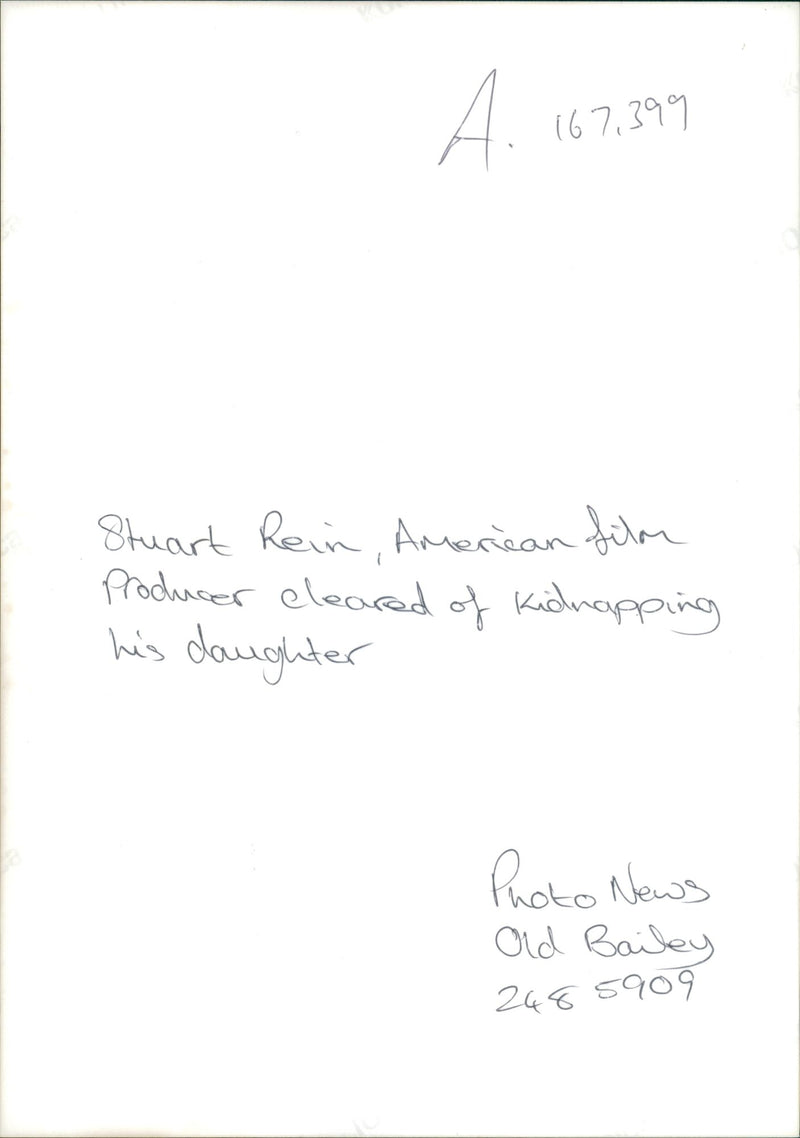 A. 167,399
Stuart Rein, American film
Producer cleared of kidnapping
his daughter
Photo News
Old Bailey
248 5909